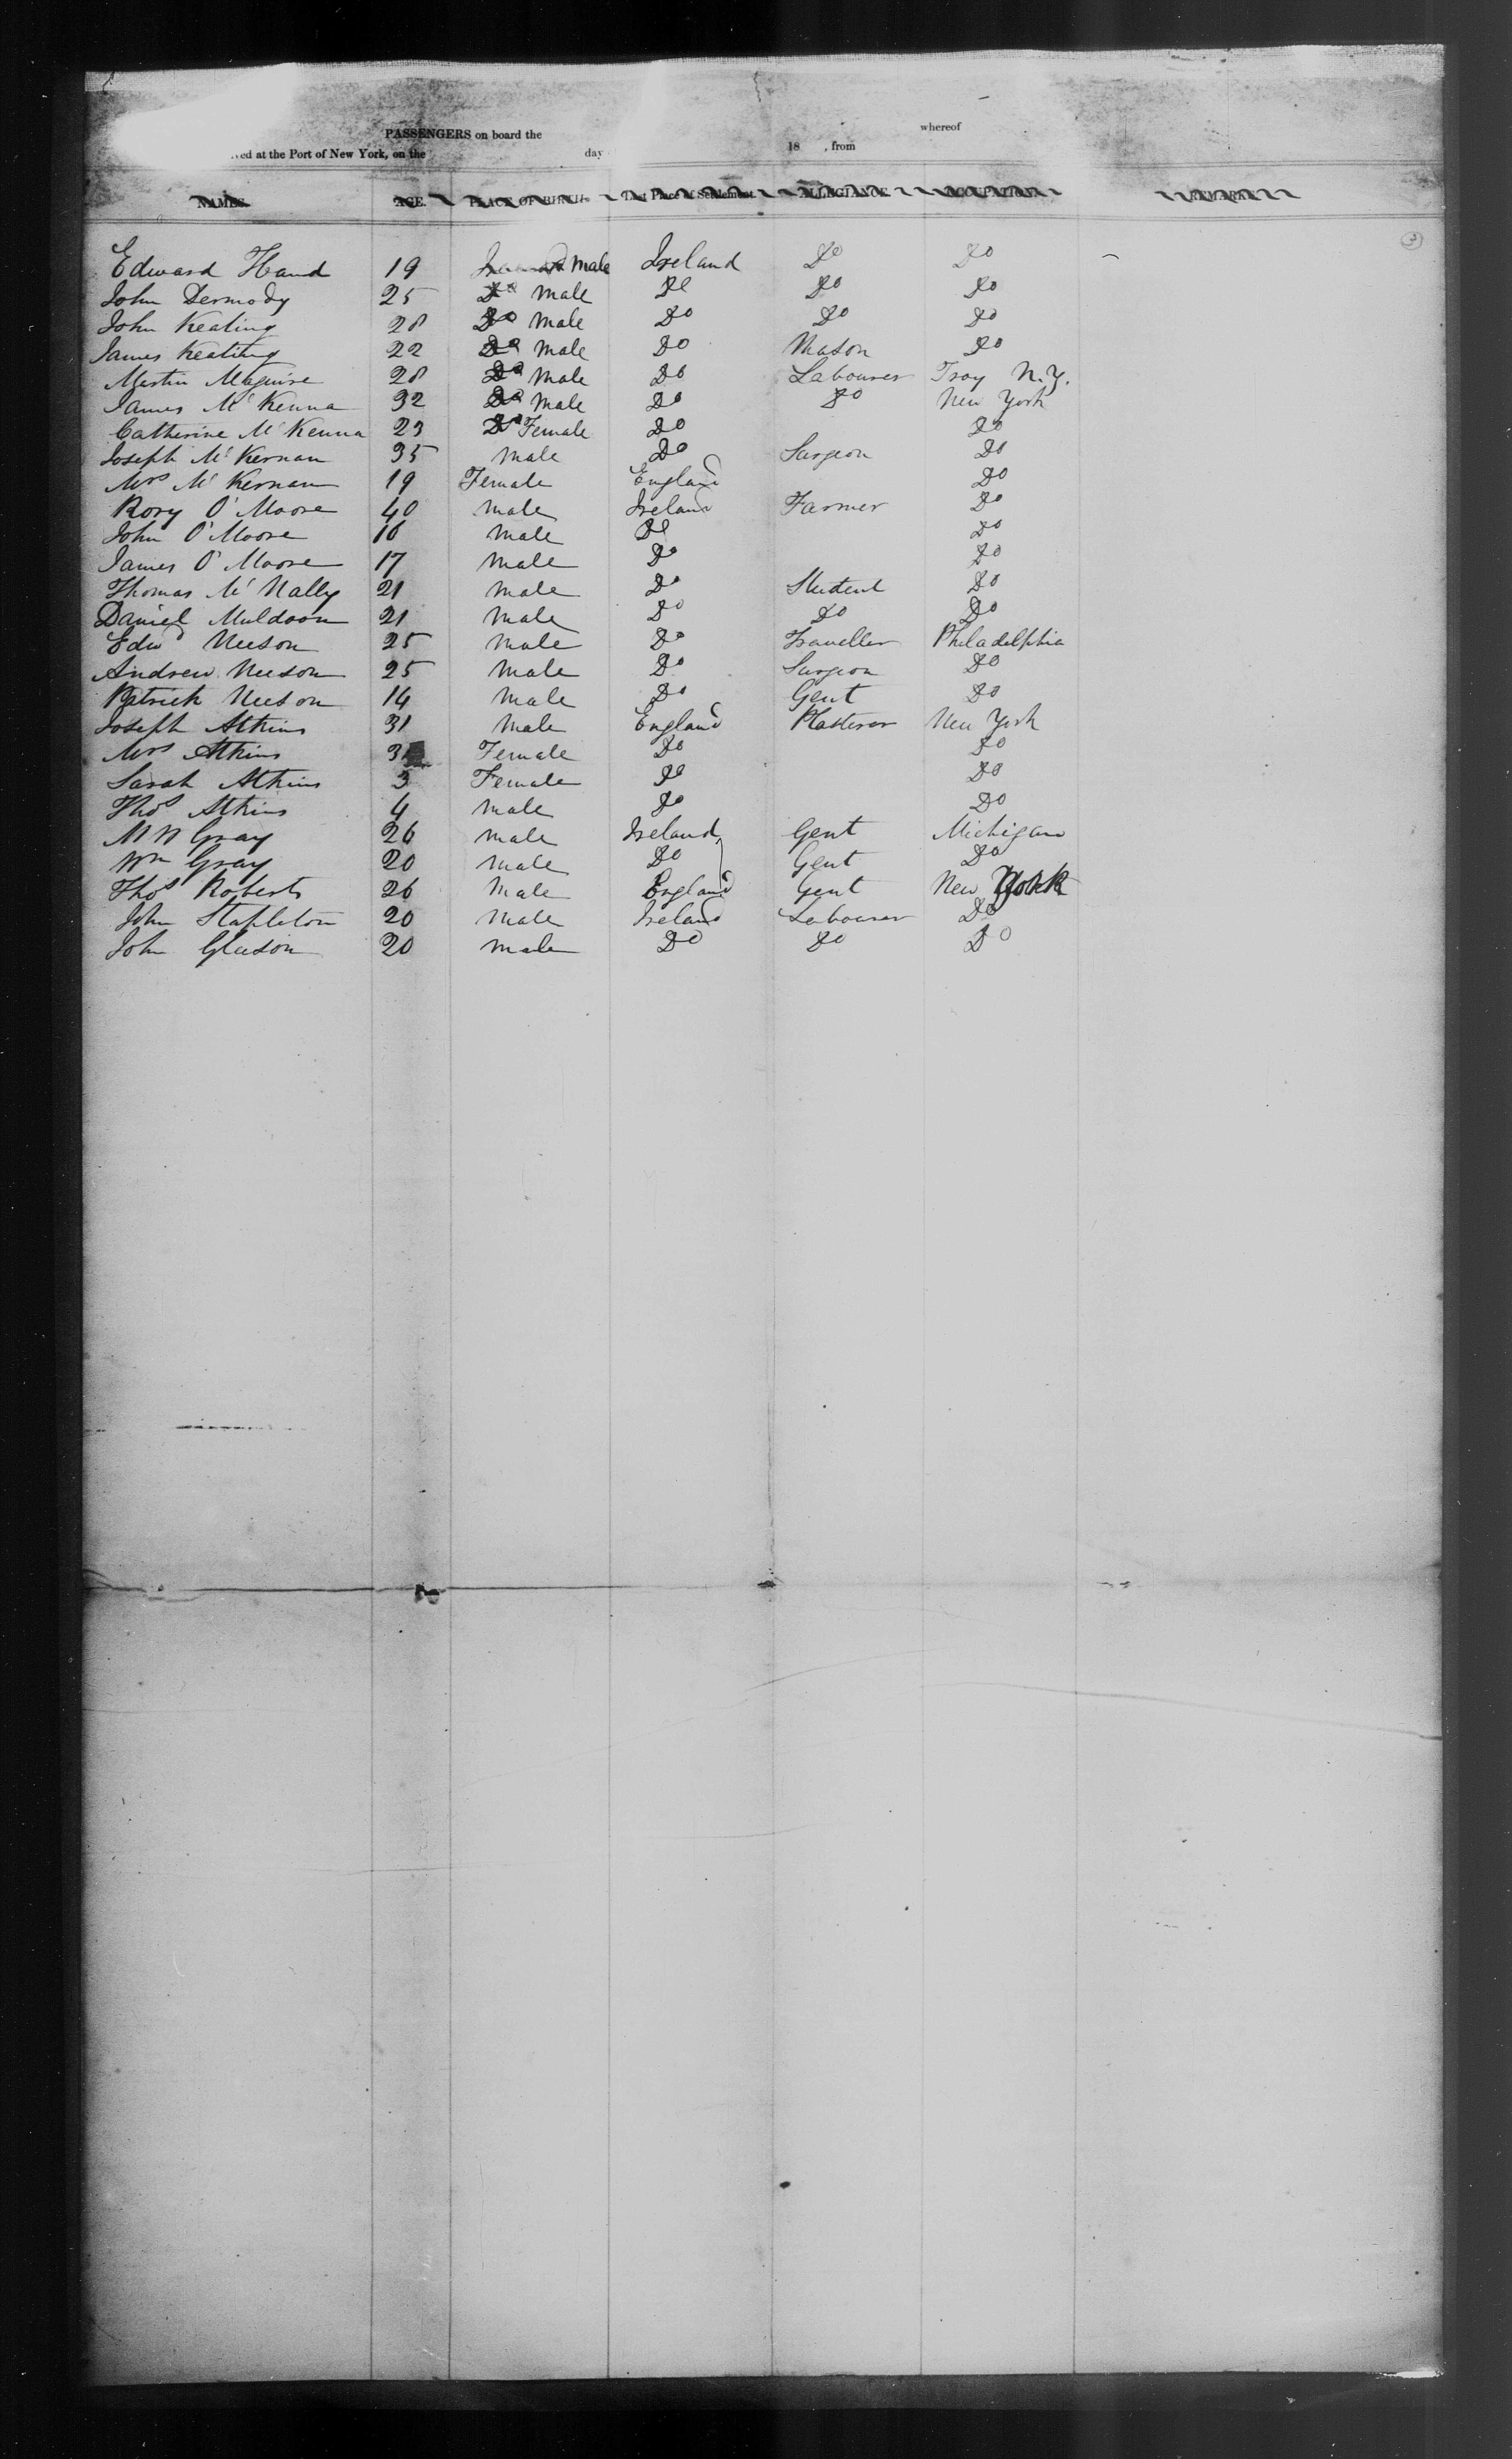 PASSENGERS on board the whereof
ved at the Port of New York, on the day 18 , from
NAMES. AGE. PLACE OF BIRTH. Last Place of Settlement. ALLEGIANCE. OCCUPATION. REMARKS.
3
Edward Hand 19 Ireland Male Ireland Do Do
John Dermody 25 Do Male Do Do Do
John Keating 28 Do Male Do Do Do
James Keating 22 Do Male Do Mason Do
Martin Maguire 28 Do Male Do Labourer Troy N.Y.
James McKenna 32 Do Male Do Do New York
Catherine McKenna 23 Do Female Do Do
Joseph McKernan 35 Male Do Surgeon Do
Mrs McKernan 19 Female England Do
Rory O'Moore 40 Male Ireland Farmer Do
John O'Moore 16 Male Do Do
James O'Moore 17 Male Do Do
Thomas McNally 21 Male Do Student Do
Daniel Muldoon 21 Male Do Do Do
Edwd Neeson 25 Male Do Traveller Philadelphia
Andrew Neeson 25 Male Do Surgeon Do
Patrick Neeson 14 Male Do Gent Do
Joseph Atkins 31 Male England Plasterer New York
Mrs Atkins Female Do Do
Sarah Atkins 3 Female Do Do
Thos Atkins 4 Male Do Do
Gray 26 Male Ireland Gent Michigan
Wm Gray 20 Male Do Gent Do
Thos Roberts 26 Male England Gent New York
John Stapleton 20 Male Ireland Labourer Do
John Gleeson 20 Male Do Do Do